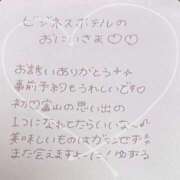 ビジネスホテルの
おにいさま♡♡
お誘いありがとう
事前予約もうれしいです♡
初♡富山の思い出の
1コになれてたらいいな〜
美味しいものはガマンせず
また会えますように！ゆずる